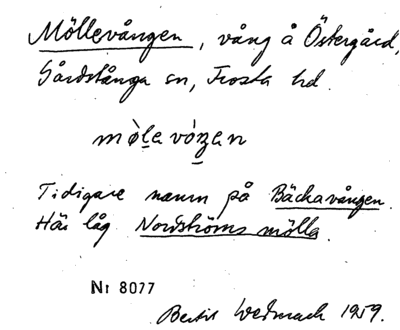 Möllevången, vång å Östergård,
Gårdstånga sn, Frosta hd.
mòlevóŋen
Tidigare namn på Bäckavången.
Här låg Nordströms mölla.
Nr 8077
Bertil Wedmark 1959.